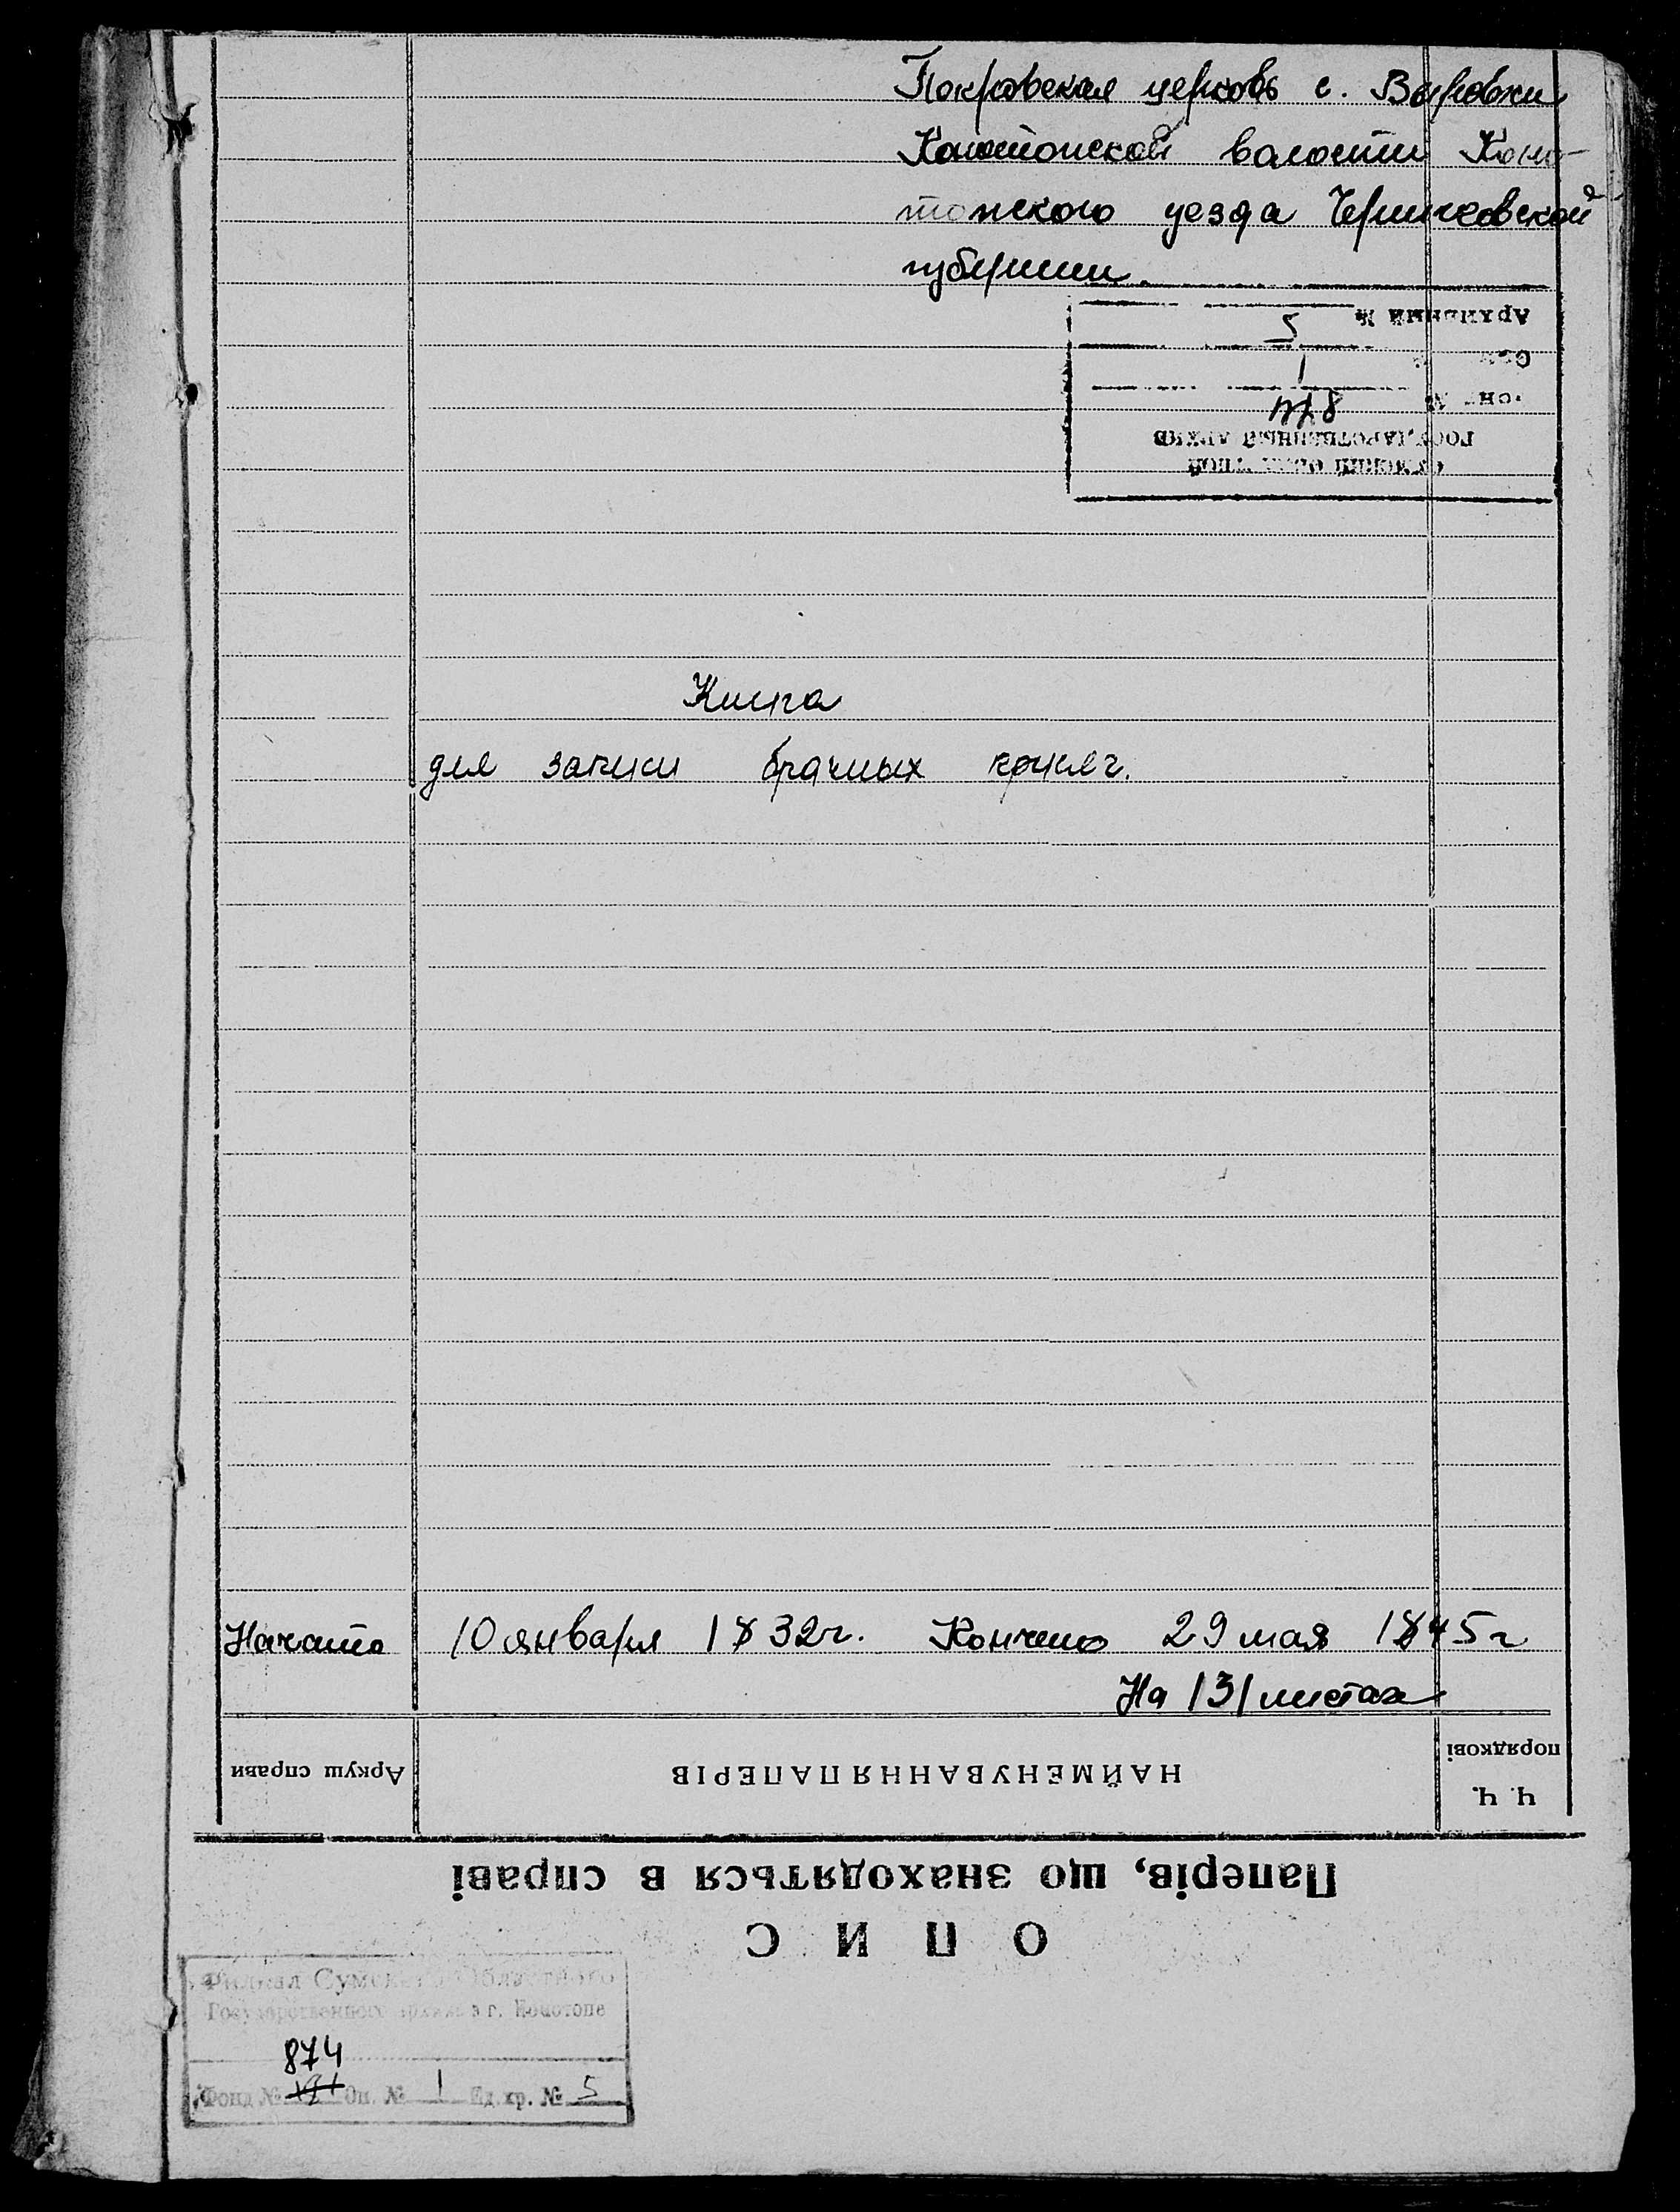 Покровская церковь с. Выровки
Конотопской волости Коно-
топского уезда Черниговской
губернии.
Архивный № 5
1
874
ГОСУДАРСТВЕННЫЙ АРХИВ
Книга
для записи брачных
Начато 10 января 1832 г. Кончено 29 мая 1845 г
На 131 листах
Аркуш справи
НАЙМЕНУВАННЯ ПАПЕРІВ
Ч. Ч.
порядкові
Паперів, що знаходяться в справі
ОПИС
Филиал Сумского Областного
Государственного архива в г. Конотопе
874
Фонд № Оп. № 1 Ед. хр. № 5